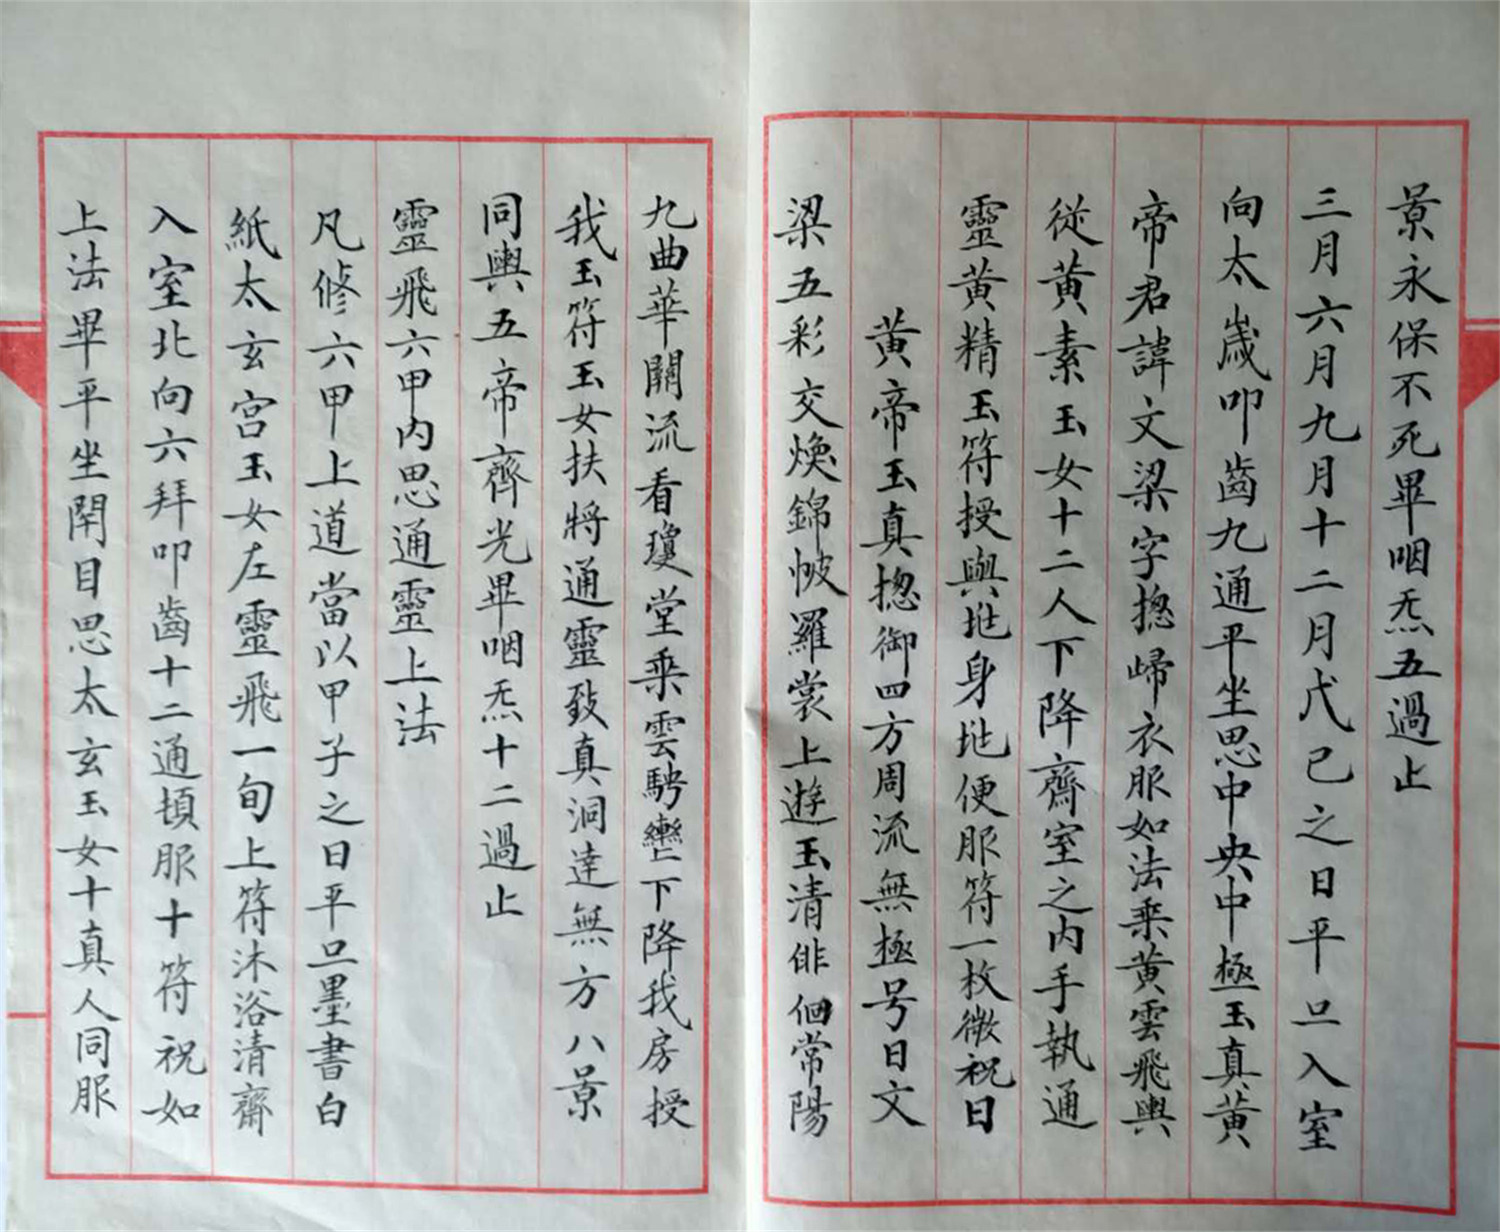 景永保不死畢咽炁五過止
三月六月九月十二月戊己之日平旦入室
向太歲叩齒九通平坐思中央中極玉真黃
帝君諱文梁字揔歸衣服如法乘黃雲飛輿
從黃素玉女十二人下降齋室之內手執通
靈黃精玉符授與兆身兆便服符一枚微祝曰
黃帝玉真揔御四方周流無極号曰文
梁五彩交煥錦帔羅裳上遊玉清俳佪常陽
九曲華關流看瓊堂乘雲騁轡下降我房授
我玉符玉女扶將通靈致真洞達無方八景
同輿五帝齊光畢咽炁十二過止
靈飛六甲內思通靈上法
凡脩六甲上道當以甲子之日平旦墨書白
紙太玄宮玉女左靈飛一旬上符沐浴清齋
入室北向六拜叩齒十二通頓服十符祝如
上法畢平坐閇目思太玄玉女十真人同服